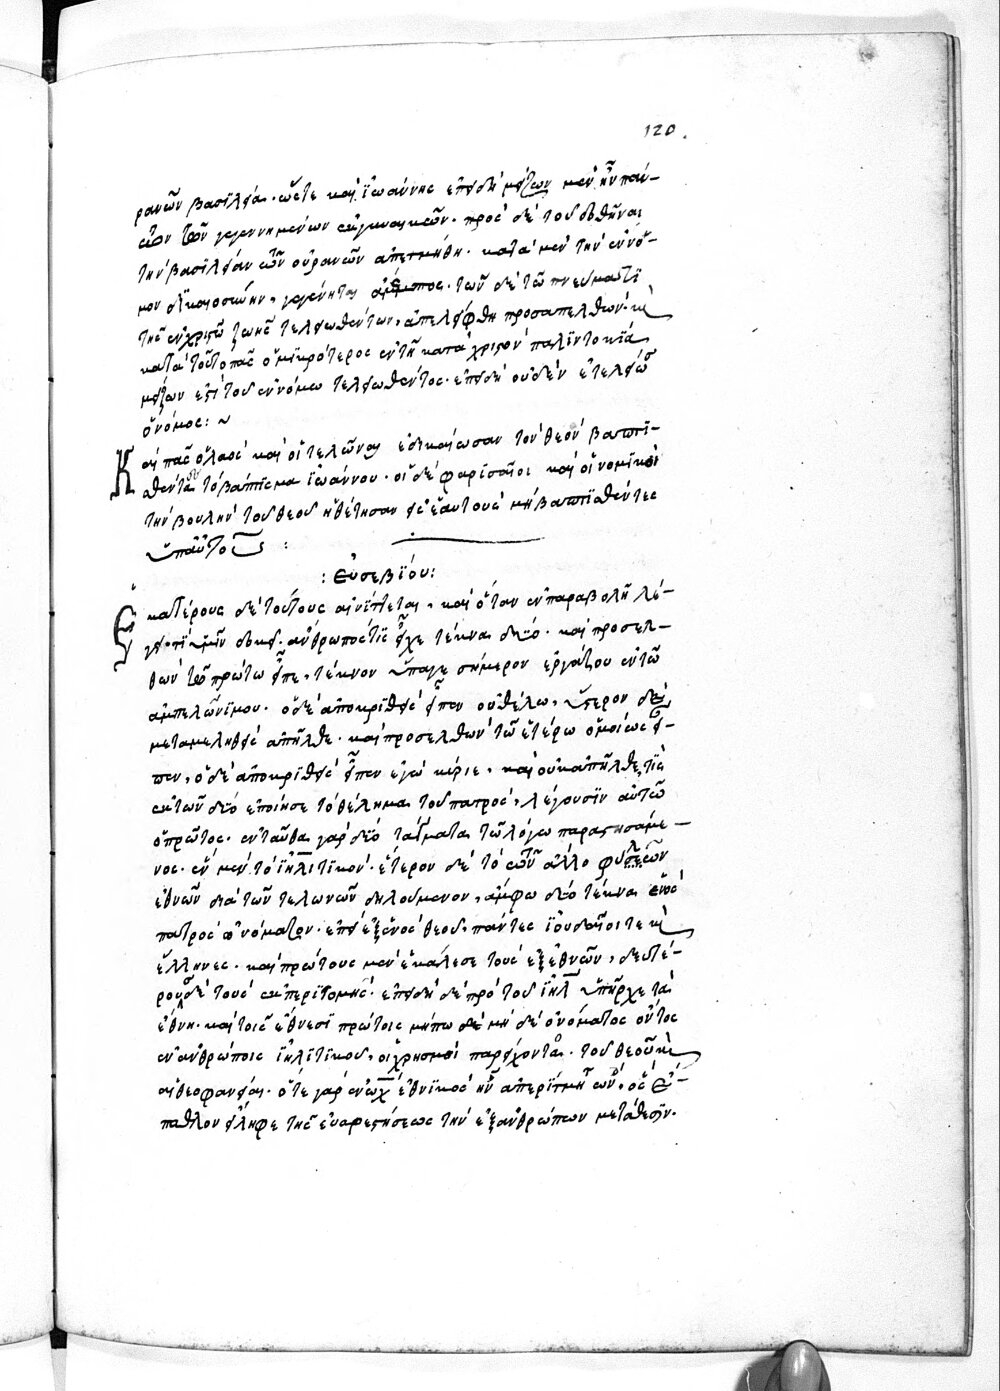 120.
ρανῶν βασιλεία. ὥστε καὶ ἰωάννης ἐπειδὴ μείζων μὲν ἦν πάν-
των τῶν γεγεννημένων ἐν γυναικῶν. πρὸς δὲ τοῦ δοθῆναι
τὴν βασιλείαν τῶν οὐρανῶν ἀπετμήθη. κατὰ μὲν τὴν ἐν νό-
μον δικαιοσύνην, γεγένηται ἄμεμπτος. τῶν δὲ τῶ πνεύματι
τῆς ἐν χριστῶ ζωῆς τελειωθέντων, ἀπελείφθη προσαπελθών. καὶ
κατὰ τοῦτο πᾶς ὁ μικρότερος ἐν τῆ κατὰ χριστὸν παλιντοκία
μείζων ἐστὶ τοῦ ἐν νόμω τελειωθέντος. ἐπειδὴ οὐδὲν ἐτελείω
ὁ νόμος: ~
Καὶ πᾶς ὁ λαὸς καὶ οἱ τελῶναι ἐδικαίωσαν τὸν θεὸν βαπτι-
σθέντες τὸ βάπτισμα ἰωάννου. οἱ δὲ φαρισαῖοι καὶ οἱ νομικοὶ
τὴν βουλὴν τοῦ θεοῦ ἠθέτησαν εἰς ἑαυτοὺς μὴ βαπτισθέντες
ὑπ' αὐτοῦ :
: Εὐσεβίου:
Ἑκατέρους δὲ τούτους αἰνίττεται, καὶ ὅταν ἐν παραβολῆ λέ-
γει. τί ὑμῖν δοκεῖ. ἄνθρωπός τις εἶχε τέκνα δύο. καὶ προσελ-
θὼν τῶ πρώτω εἶπε, τέκνον ὕπαγε σήμερον ἐργάζου ἐν τῶ
ἀμπελῶνι μου. ὁ δὲ ἀποκριθεὶς εἶπεν οὐ θέλω, ὕστερον δὲ
μεταμεληθεὶς ἀπῆλθε. καὶ προσελθὼν τῶ ἑτέρω ὁμοίως εἶ-
πεν, ὁ δὲ ἀποκριθεὶς εἶπεν ἐγὼ κύριε, καὶ οὐκ ἀπῆλθε, τίς
ἐκ τῶν δύο ἐποίησε τὸ θέλημα τοῦ πατρός, λέγουσιν αὐτῶ
ὁ πρῶτος. ἐνταῦθα γὰρ δύο τάγματα τῶ λόγω παραστησάμε-
νος. ἓν μὲν τὸ ἰηλιτικόν. ἕτερον δὲ τὸ τῶν ἀλλοφύλων
ἐθνῶν διὰ τῶν τελωνῶν δηλούμενον, ἄμφω δύο τέκνα ἑνὸς
πατρὸς ὠνόμαζεν. ἐπεὶ ἐξ ἑνὸς θεοῦ, πάντες ἰουδαῖοι τε καὶ
ἕλληνες. καὶ πρώτους μὲν ἐκάλεσε τοὺς ἐξ ἐθνῶν, δευτέ-
ρους δὲ τοὺς ἐκ περιτομῆς. ἐπειδὴ δὲ πρὸ τοῦ ἰηλ ὑπῆρχε τὰ
ἔθνη. καὶ τοῖς ἔθνεσι πρώτοις μήπω δὲ μὴ δὲ ὀνόματος ὄντος
ἐν ἀνθρώποις ἰηλιτικοῦ, οἱ χρησμοὶ παρείχοντο. τοῦ θεοῦ καὶ
αἱ θεοφάνειαι. ὅτε γὰρ ἐνὼχ ἐθνικὸς ἦν ἀπερίτμητος ὤν, ὃς ἔ-
παθλον εἴληφε τῆς εὐαρεστήσεως τὴν ἐξ ἀνθρώπων μετάθεσιν.